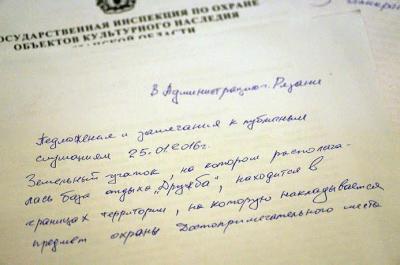 ГОСУДАРСТВЕННАЯ ИНСПЕКЦИЯ ПО ОХРАНЕ
ОБЪЕКТОВ КУЛЬТУРНОГО НАСЛЕДИЯ
ОБЛАСТИ
В Администрацию г. Рязани
Предложения и замечания к публичным
слушаниям 25.01.2016г.
Земельный участок, на котором располага-
лась база отдыха „Дружба", находится в
границах территории, на которую накладывается
предмет охраны Достопримечательного места